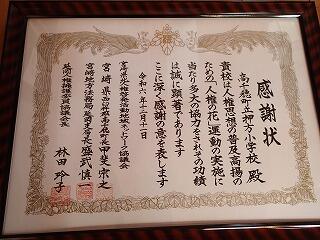 感謝状
高千穂町立押方小学校 殿
貴校は人権思想の普及高揚の
ための「人権の花」運動の実施に
当たり多大の協力をされその功績
は誠に顕著であります
ここに深く感謝の意を表します
令和六年十二月十一日
宮崎県北人権啓発活動地域ネットワーク協議会
宮崎県西臼杵郡高千穂町長 甲斐宗之
宮崎地方法務局延岡支局長 盛武慎一
延岡人権擁護委員協議会長
林田 玲子